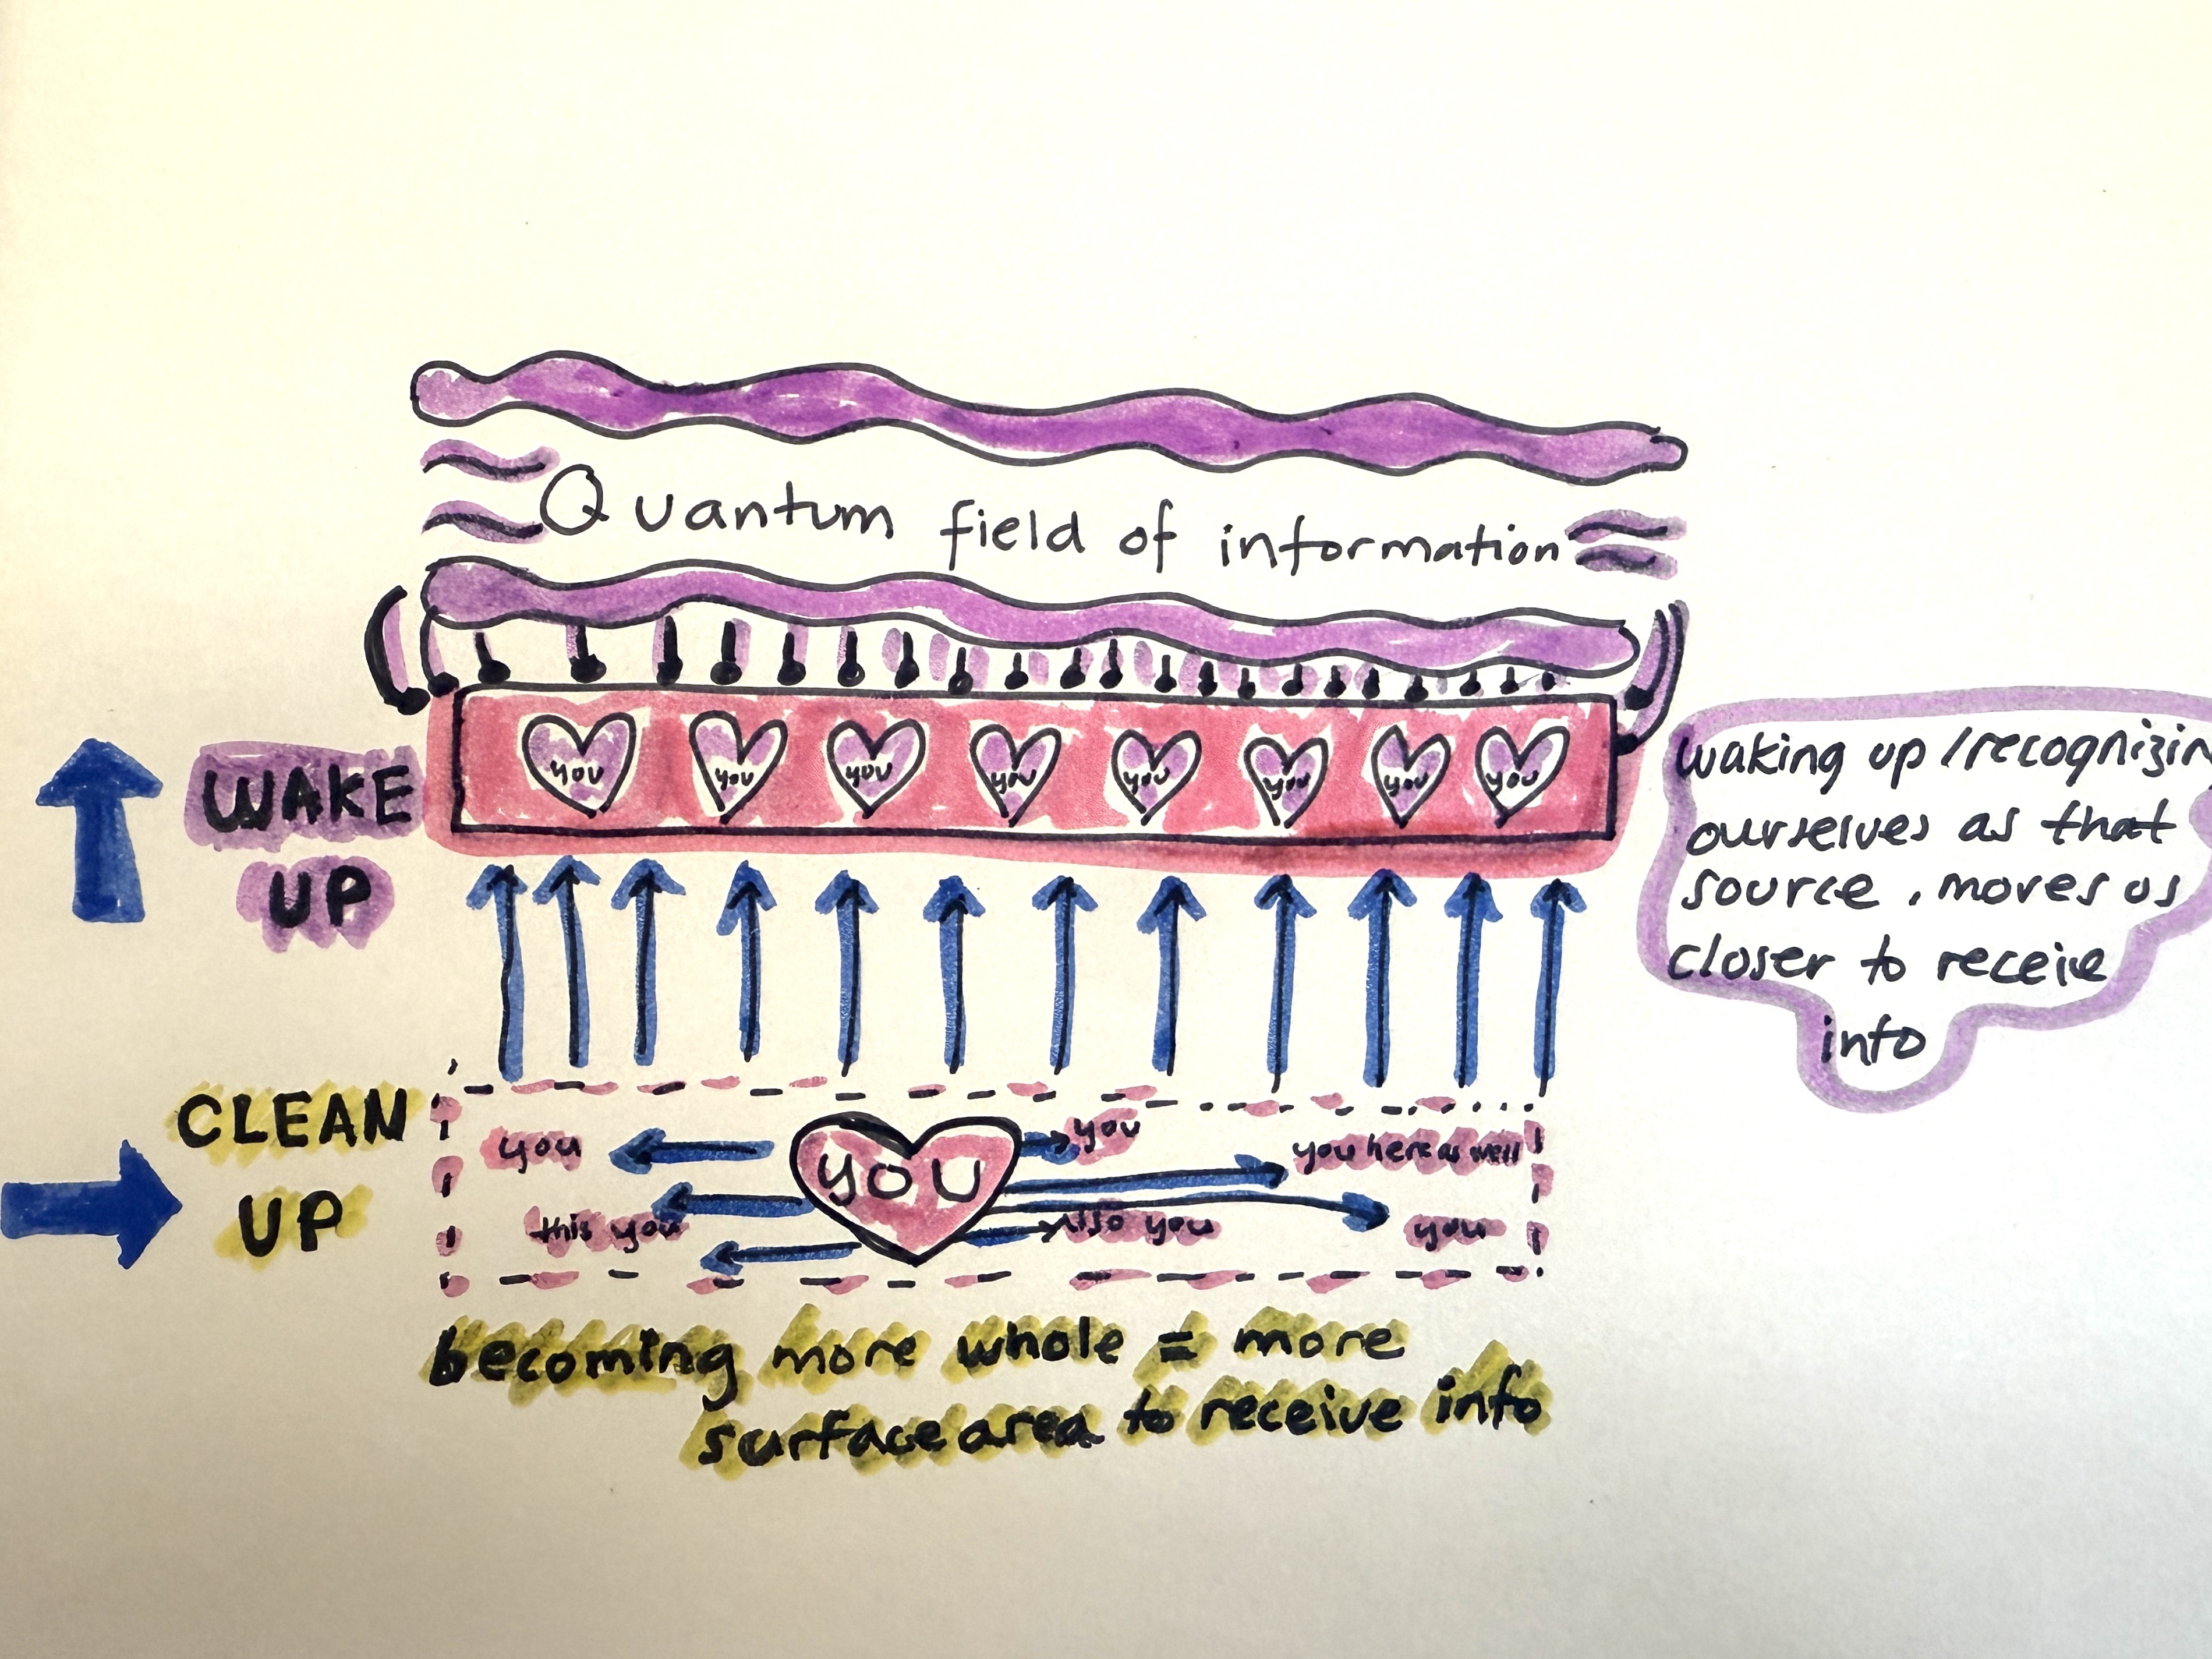 Quantum field of information
you you you you you you you you
WAKE
UP
waking up / recognizin
ourselves as that
source, moves us
closer to receive
info
CLEAN
UP
you
YOU
you
you here as well
this you
Also you
you
becoming more whole = more
surface area to receive info